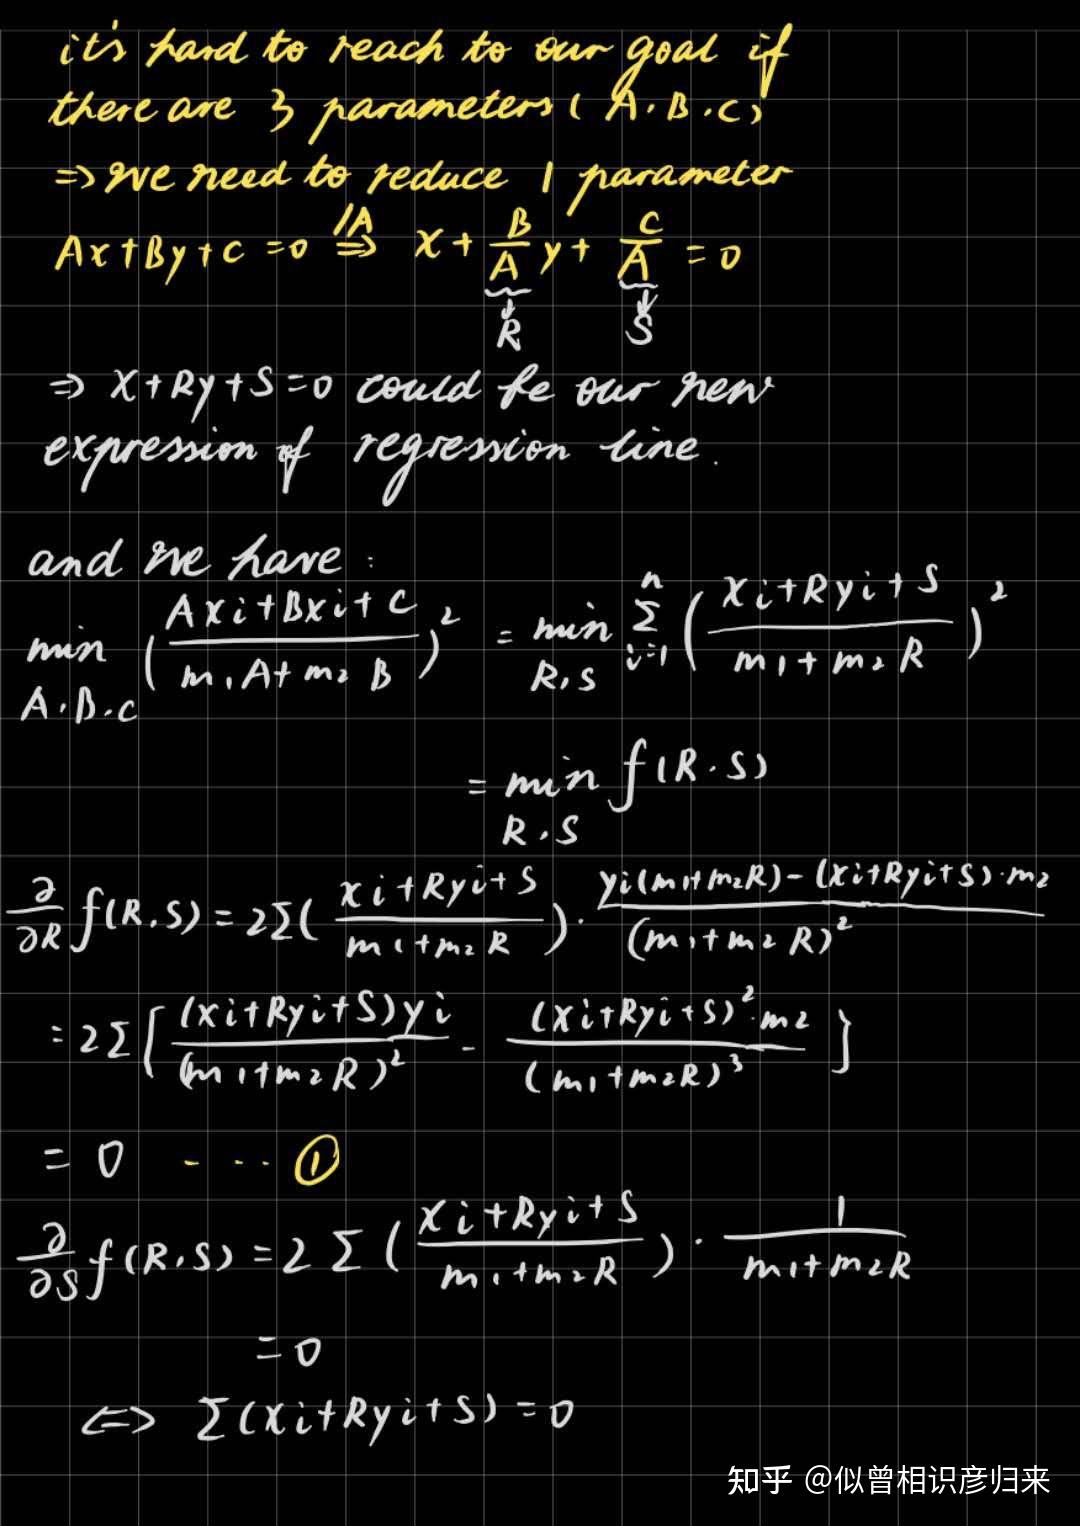 it's hard to reach to our goal if
there are 3 parameters (A.B.C)
=> we need to reduce 1 parameter
Ax+By+C=0 /A => x + B/A y + C/A = 0
R S
=> x+Ry+S=0 could be our new
expression of regression line.
and we have:
min A.B.C ( (Axi+Bxi+C) / (m₁A+m₂B) )² = min R,S Σ i=1 n ( (xi+Ryi+S) / (m₁+m₂R) )²
= min R.S f(R.S)
∂/∂R f(R.S) = 2Σ( (xi+Ryi+S) / (m₁+m₂R) ) · (yi(m₁+m₂R)-(xi+Ryi+S)·m₂) / (m₁+m₂R)²
= 2Σ[ (xi+Ryi+S)yi / (m₁+m₂R)² - (xi+Ryi+S)²·m₂ / (m₁+m₂R)³ ]
= 0 - ... ①
∂/∂S f(R.S) = 2Σ( (xi+Ryi+S) / (m₁+m₂R) ) · 1 / (m₁+m₂R)
= 0
<=> Σ(xi+Ryi+S) = 0
知乎 @似曾相识彦归来